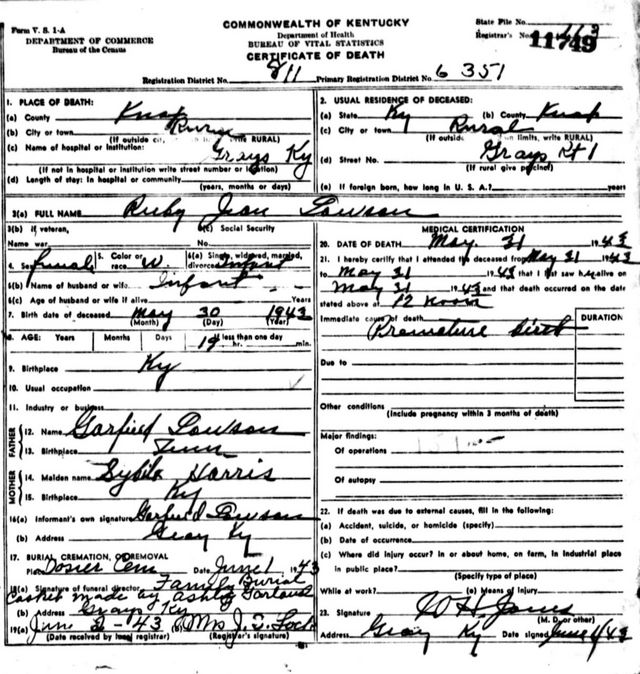 Form V. S. 1-A
DEPARTMENT OF COMMERCE
Bureau of the Census
COMMONWEALTH OF KENTUCKY
Department of Health
BUREAU OF VITAL STATISTICS
CERTIFICATE OF DEATH
State File No.
Registrar's No. 113
11749
Registration District No. 811 Primary Registration District No. 6351
1. PLACE OF DEATH:
(a) County Knox
(b) City or town Rural
(If outside city, write RURAL)
(c) Name of hospital or institution:
Grays Ky
(If not in hospital or institution write street number or location)
(d) Length of stay: In hospital or community
(years, months or days)
2. USUAL RESIDENCE OF DECEASED:
(a) State Ky (b) County Knox
(c) City or town Rural
(If outside town limits, write RURAL)
(d) Street No. Grays Rt 1
(If rural give precinct)
(e) If foreign born, how long in U. S. A.? years
3(a) FULL NAME Ruby Jean Lawson
3(b) If veteran,
Name war
3(c) Social Security
No.
4. Sex female 5. Color or race W. 6(a) Single, widowed, married, divorced Infant
6(b) Name of husband or wife Infant
6(c) Age of husband or wife if alive Years
7. Birth date of deceased May 30 1943
(Month) (Day) (Year)
8. AGE: Years Months Days If less than one day
19 hr. min.
9. Birthplace Ky
10. Usual occupation
11. Industry or business
FATHER
12. Name Garfield Lawson
13. Birthplace Tenn
MOTHER
14. Maiden name Sybil Harris
15. Birthplace Ky
16(a) Informant's own signature Garfield Lawson
(b) Address Gray Ky
17. BURIAL, CREMATION, OR REMOVAL
Place Dosier Cem Date June 1, 1943
18(a) Signature of funeral director Family Burial
Casket made by Ashly Garland
(b) Address Grays Ky
19(a) June 2-43 (b) Mrs J. T.
(Date received by local registrar) (Registrar's signature)
MEDICAL CERTIFICATION
20. DATE OF DEATH May 31 1943
21. I hereby certify that I attended the deceased from May 31 1943
to May 31 1943 that I last saw her alive on
May 31 1943 and that death occurred on the date
stated above at 12 noon
Immediate cause of death
Premature birth
DURATION
Due to
Other conditions
(Include pregnancy within 3 months of death)
Major findings:
Of operations
Of autopsy
22. If death was due to external causes, fill in the following:
(a) Accident, suicide, or homicide (specify)
(b) Date of occurrence
(c) Where did injury occur? In or about home, on farm, in industrial place
in public place?
(Specify type of place)
While at work? (e) Means of injury
23. Signature W H Jones
(M. D. or other)
Address Gray Ky Date signed June 1/43